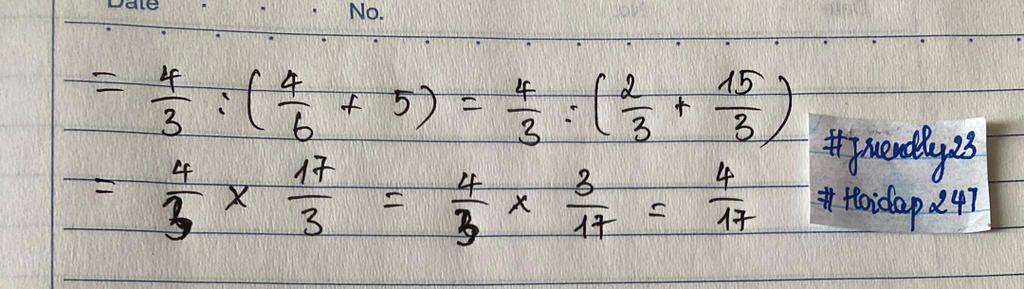 Date No.
= 4/3 : (4/6 + 5) = 4/3 : (2/3 + 15/3)
= 4/3 × 17/3 = 4/3 × 3/17 = 4/17
#friendly23
#Hoidap247